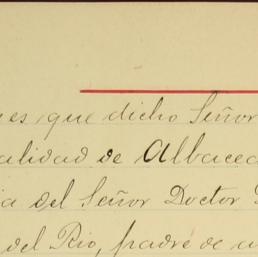 es que dicho Señor
alidad de Albace
a del Señor Doctor
del Rio, padre de